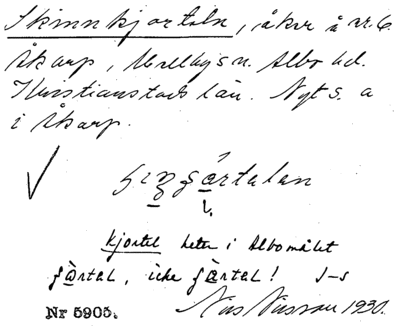 Skinnkjorteln, åker å nr. 6
Åkarp, Mellby sn. Albo hd.
Kristianstads län. Nyt s. a
i Åkarp.
kjortel heter i Albomålet
icke
J-s
Nr 5905.
Nils Nilsson 1930.